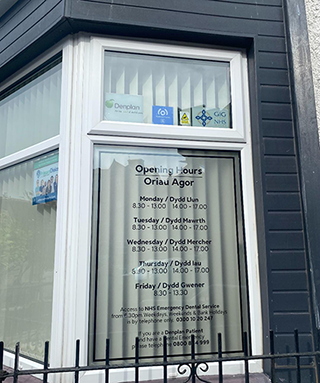 Denplan
GIG
NHS
Denplan
Opening Hours
Oriau Agor
Monday / Dydd Llun
8.30 - 13.00 14.00 - 17.00
Tuesday / Dydd Mawrth
8.30 - 13.00 14.00 - 17.00
Wednesday / Dydd Mercher
8.30 - 13.00 14.00 - 17.00
Thursday / Dydd Iau
8.30 - 13.00 14.00 - 17.00
Friday / Dydd Gwener
8.30 - 13.30
Access to NHS Emergency Dental Service
from 5.30pm Weekdays, Weekends & Bank Holidays
is by telephone only: 0300 10 20 247
If you are a Denplan Patient
and have a Dental Emergency,
please telephone 0800 999